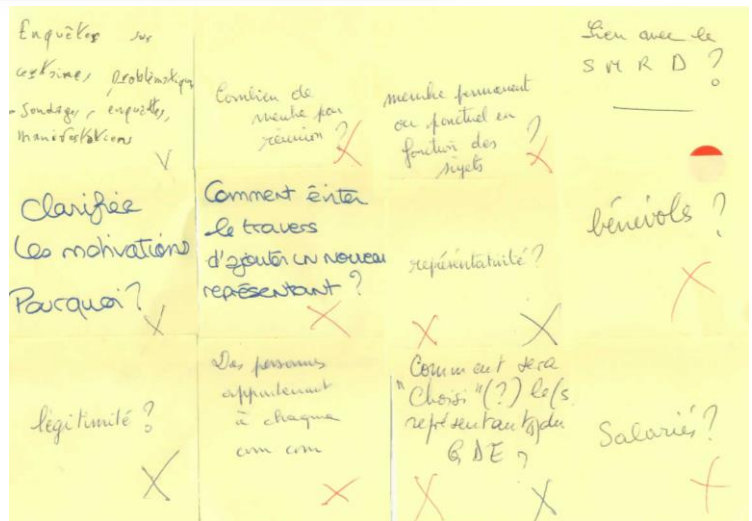 Enquêtes sur
certaines problématiques
- Sondages, enquêtes,
manifestations
Combien de
membre par
réunion ?
membre permanent
ou ponctuel en
fonction des
sujets ?
Lien avec le
S M R D ?
Clarifiée
Les motivations
Pourquoi ?
Comment éviter
le travers
d'ajouter un nouveau
représentant ?
représentativité ?
bénévols ?
légitimité ?
Des personnes
appartenant
à chaque
com com
Comment sera
"Choisi" (?) le(s
représentant(s) du
GDE ?
Salariés ?